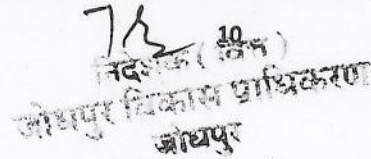 10
निदेशक (वित्त)
जोधपुर विकास प्राधिकरण
जोधपुर